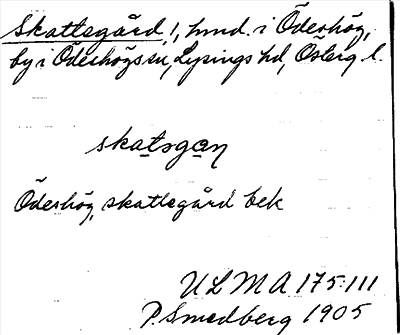 Skattegård, hmd. i Ödeshög,
by i Ödeshögs sn, Lysings hd, Österg. l.
skatsgaŋ
Ödeshög, skattegård bek
ULMA 175:111
P. Smedberg 1905